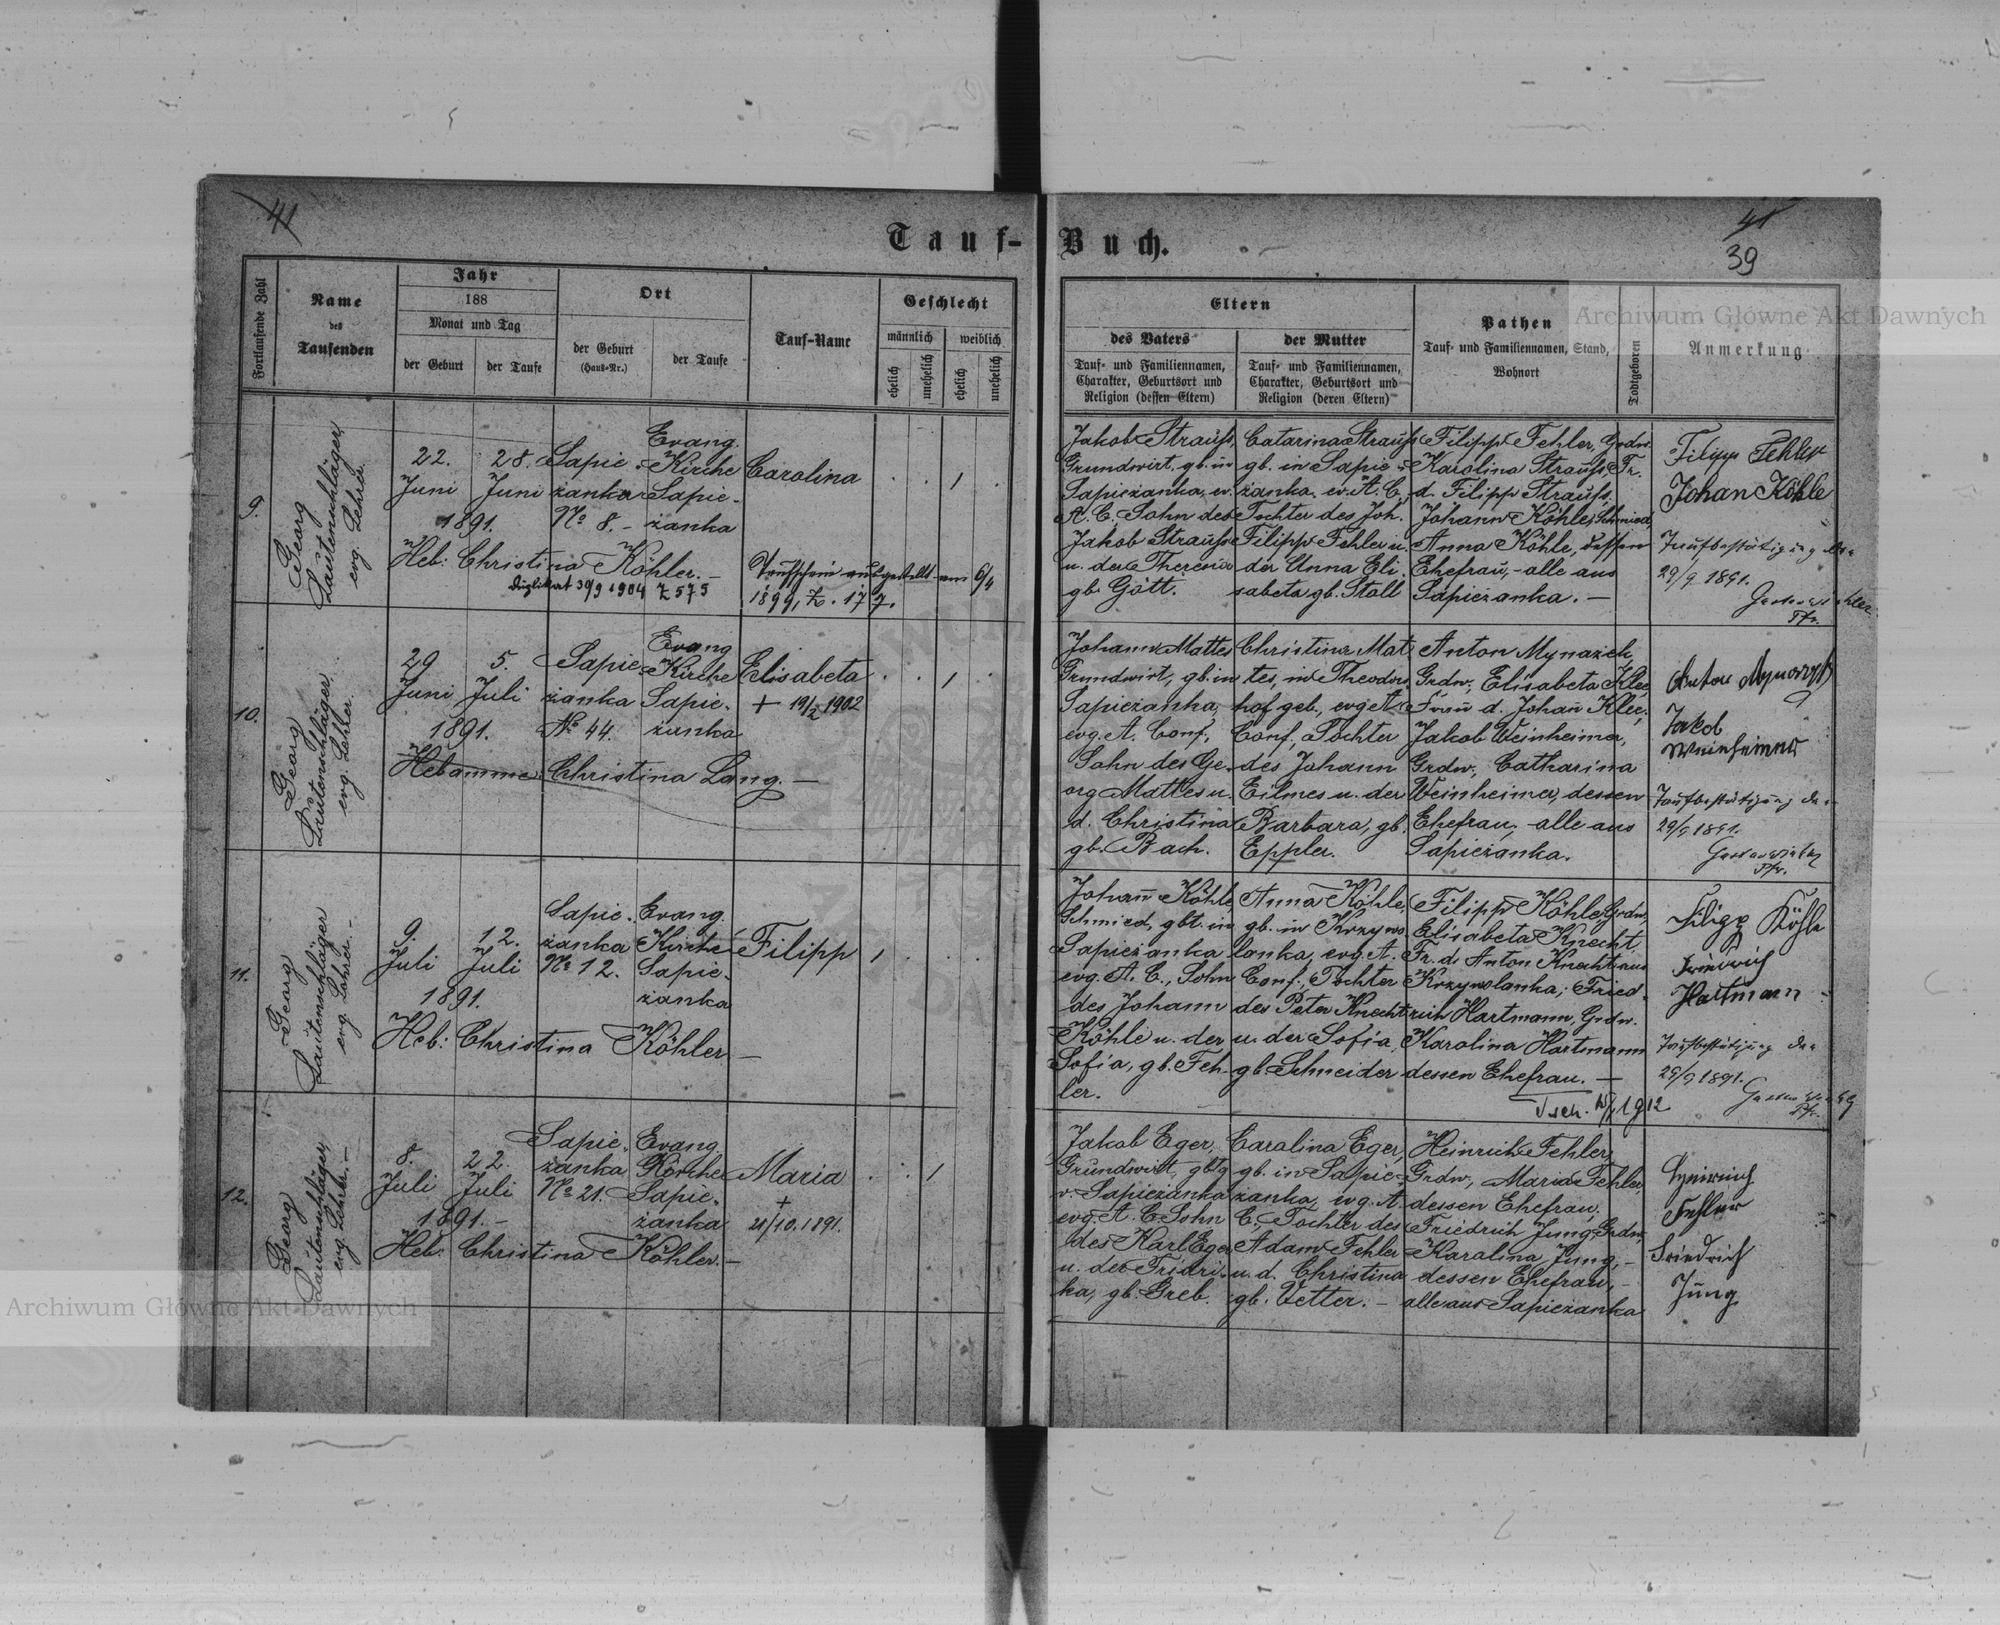 41
Tauf-Buch.
41
39
Archiwum Główne Akt Dawnych
Fortlaufende Zahl
Name
des
Taufenden
Jahr
188
Monat und Tag
der Geburt
der Taufe
Ort
der Geburt
(Haus-Nr.)
der Taufe
Tauf-Name
Geschlecht
männlich
weiblich
ehelich
unehelich
ehelich
unehelich
Eltern
des Vaters
Tauf- und Familiennamen,
Charakter, Geburtsort und
Religion (dessen Eltern)
der Mutter
Tauf- und Familiennamen,
Charakter, Geburtsort und
Religion (deren Eltern)
Pathen
Tauf- und Familiennamen, Stand,
Wohnort
Todtgeboren
Anmerkung
9.
Georg
Lautenschläger,
evg. Lehrer.
22.
Juni
28.
Juni
1891.
Sapie-
żanka
No 8.-
Evang.
Kirche
Sapie-
żanka
Carolina
1
Heb: Christina Köhler.-
Duplikat 30/9 1904 Z 575
Taufschein ausgestellt am 6/4
1899, Z. 177.
Jakob Strauss,
Grundwirt, gb. in
Sapieżanka, ev.
A. C. Sohn des
Jakob Strauss
u. der Theresia
gb. Gött.
Catarina Strauss
gb. in Sapie-
żanka, ev. A. C.,
Tochter des Joh.
Filipp Fehler u.
der Anna Eli-
sabeta gb. Stoll
Filipp Fehler, Grdw.
Karolina Strauss Fr.
d. Filipp Strauss.
Johann Köhle, Schmied,
Anna Köhle, dessen
Ehefrau,- alle aus
Sapieżanka.-
Filipp Fehler
Johan Köhle
Taufbestätigung
29/9 1891.
Pfr.
10.
Georg
Lautenschläger,
evg. Lehrer.
29
Juni
5.
Juli
1891.
Sapie-
żanka
No 44.
Evang
Kirche
Sapie-
żanka
Elisabeta
+ 19/2 1902
1
Hebamme: Christina Lang.-
Johann Mattes
Grundwirt, gb. in
Sapieżanka,
evg. A. Conf.,
Sohn des Ge-
org Mattes u.
d. Christina
gb. Bach.
Christina Mat-
tes, in Theodors-
hof geb., evg. A.
Conf., Tochter
des Johann
Eilmes u. der
Barbara, gb.
Eppler.
Anton Mynazek,
Grdw., Elisabeta Klee,
Frau d. Johan Klee,
Jakob Weinheimer,
Grdw., Catharina
Weinheimer, dessen
Ehefrau, - alle aus
Sapieżanka.
Jakob
Weinheimer
Taufbestätigung
29/9 1891.
Pfr.
11.
Georg
Lautenschläger
evg. Lehrer.-
9.
Juli
12.
Juli
1891.
Sapie-
żanka
No 12.
Evang.
Kirche
Sapie-
żanka
Filipp
1
Heb: Christina Köhler-
Johann Köhle,
Schmied, gbt. in
Sapieżanka
evg. A. C., Sohn
des Johann
Köhle u. der
Sofia, gb. Feh-
ler.
Anna Köhle,
gb. in Krzywo-
lanka, evg. A.
Conf., Tochter
des Peter Knecht
u. der Sofia,
gb. Schneider
Filipp Köhle, Grdw.,
Elisabeta Knecht
Fr. d. Anton Knecht aus
Krzywolanka; Fried-
rich Hartmann, Grdw.
Karolina Hartmann
dessen Ehefrau.-
1912
Filipp Köhle
Friedrich
Hartmann
Taufbestätigung
29/9 1891.
Pfr.
12.
Georg
Lautenschläger,
evg. Lehrer.-
8.
Juli
22.
Juli
1891.-
Sapie-
żanka
No 21.
Evang.
Kirche
Sapie-
żanka
Maria
+
21/10.1891.
1
Heb: Christina Köhler.-
Jakob Eger,
Grundwirt, gbtg
v. Sapieżanka
evg. A. C. Sohn
des Karl Eger
u. der Fridri-
ka, gb. Greb.
Carolina Eger,
gb. in Sapie-
żanka, evg. A.
C., Tochter des
Adam Fehler
u. d. Christina
gb. Vetter.-
Heinrich Fehler,
Grdw., Maria Fehler,
dessen Ehefrau;
Friedrich Jung, Grdw.,
Karalina Jung,-
dessen Ehefrau,-
alle aus Sapieżanka
Heinrich
Fehler
Friedrich
Jung
Archiwum Główne Akt Dawnych